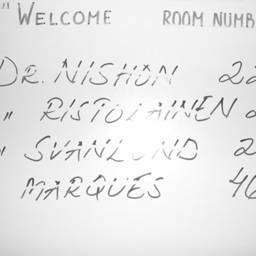 "WELCOME ROOM NUMB
DR. NISHON 22
" RISTOLAINEN 2
" SVANLUND 2
MARQUES 46